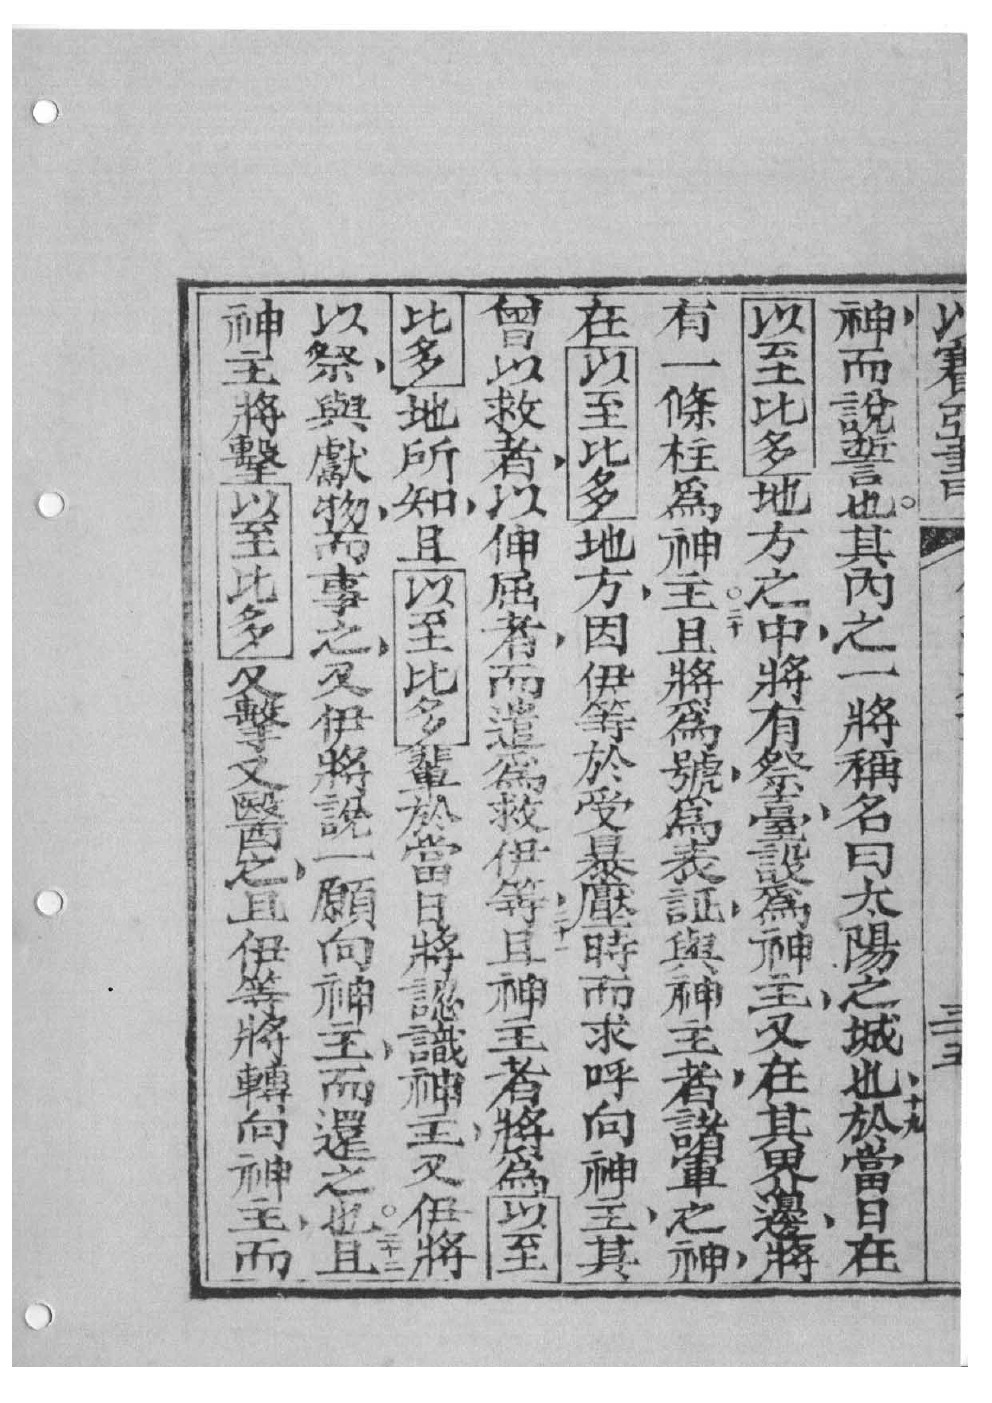 以賽亞書
三十五
神、而說誓也。其內之一將稱名曰太陽之城也、十九於當日在
以至比多地方之中、將有祭臺、設爲神主、又在其界邊、將
有一條柱爲神主。二十且將爲號、爲表証、與神主者、諸軍之神、
在以至比多地方、因伊等於受暴壓時而求呼向神主、其
曾以救者、以伸屈者、而遣爲救伊等、二十一且神主者將爲以至
比多地所知、且以至比多輩於當日將認識神主、又伊將
以祭、與獻物、而事之、又伊將說一願向神主、而還之也。二十二且
神主將擊以至比多、又擊又醫之、且伊等將轉向神主、而